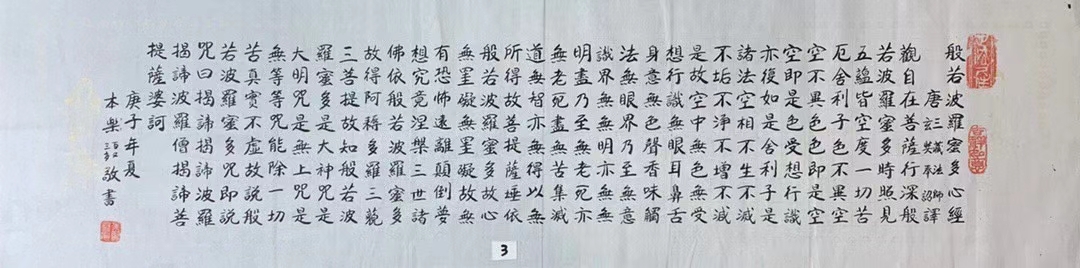 般若波羅蜜多心經
唐三藏法師玄奘奉詔譯
觀自在菩薩行深般
若波羅蜜多時照見
五蘊皆空度一切苦
厄舍利子色不異空
空不異色色即是空
空即是色受想行識
亦復如是舍利子是
諸法空相不生不滅
不垢不淨不增不減
是故空中無色無受
想行識無眼耳鼻舌
身意無色聲香味觸
法無眼界乃至無意
識界無無明亦無無
明盡乃至無老死亦
無老死盡無苦集滅
道無智亦無得以無
所得故菩提薩埵依
般若波羅蜜多故心
無罣礙無罣礙故無
有恐怖遠離顛倒夢
想究竟涅槃三世諸
佛依般若波羅蜜多
故得阿耨多羅三藐
三菩提故知般若波
羅蜜多是大神咒是
大明咒是無上咒是
無等等咒能除一切
苦真實不虛故說般
若波羅蜜多咒即說
咒曰揭諦揭諦波羅
揭諦波羅僧揭諦菩
提薩婆訶
庚子年夏
本樂敬書
3